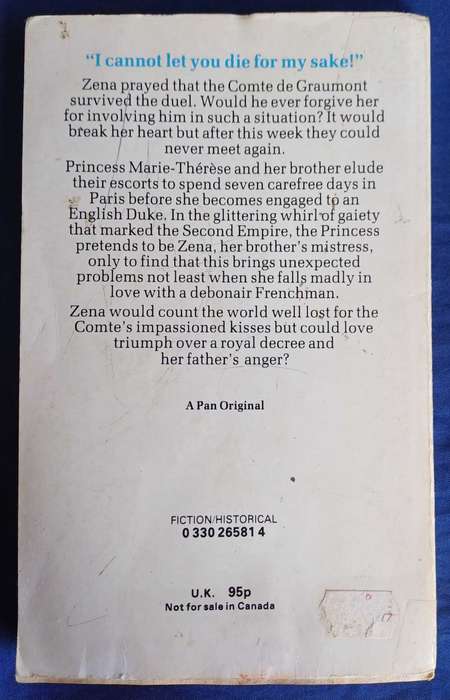 “I cannot let you die for my sake!”
Zena prayed that the Comte de Graumont
survived the duel. Would he ever forgive her
for involving him in such a situation? It would
break her heart but after this week they could
never meet again.
Princess Marie-Thérèse and her brother elude
their escorts to spend seven carefree days in
Paris before she becomes engaged to an
English Duke. In the glittering whirl of gaiety
that marked the Second Empire, the Princess
pretends to be Zena, her brother’s mistress,
only to find that this brings unexpected
problems not least when she falls madly in
love with a debonair Frenchman.
Zena would count the world well lost for the
Comte’s impassioned kisses but could love
triumph over a royal decree and
her father’s anger?
A Pan Original
FICTION/HISTORICAL
0 330 26581 4
U.K. 95p
Not for sale in Canada